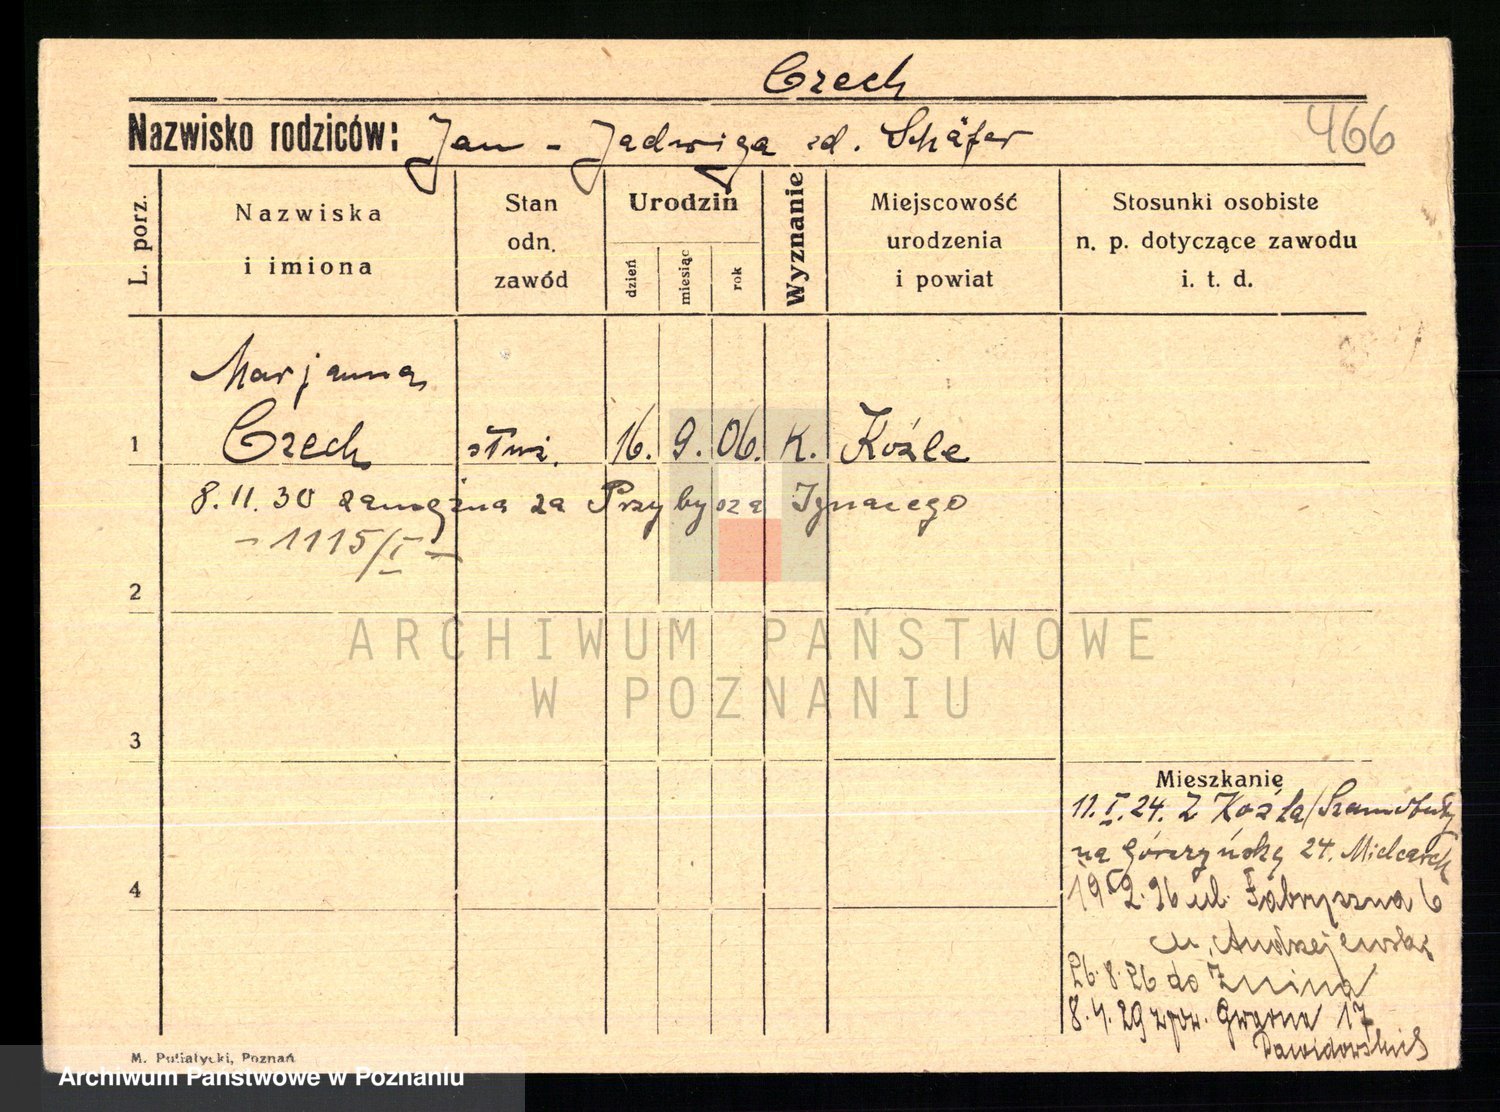 Czech
466
Nazwisko rodziców: Jan - Jadwiga zd. Schäfer
L. porz.
Nazwiska
i imiona
Stan
odn.
zawód
Urodzin
dzień
miesiąc
rok
Wyznanie
Miejscowość
urodzenia
i powiat
Stosunki osobiste
n. p. dotyczące zawodu
i. t. d.
Marjanna
1 Czech służ. 16. 9. 06. K. Koźle
8.11.30 zamężna za Przybysza Ignacego
- 1115/I -
2
ARCHIWUM PAŃSTWOWE
W POZNANIU
3
Mieszkanie
11.I.24. Z Koźla/Szamotuły
na Górczyńską 24. Mielcarek
4
ul. Fabryczna 6
Andrzejewska
26.8.26 do Żnina
8.4.29 Gwarna 17
M. Putiatycki, Poznań
Archiwum Państwowe w Poznaniu